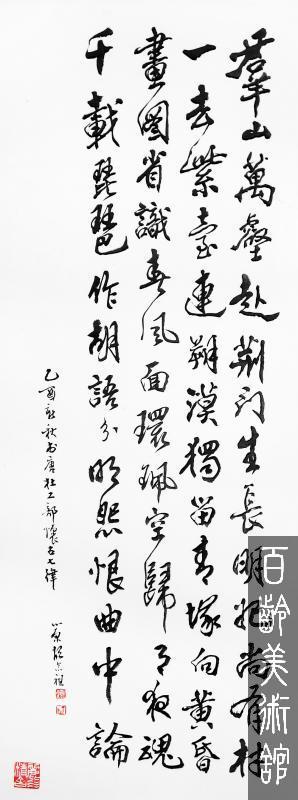 羣山萬壑赴荊門生長明妃尚有村
一去紫臺連朔漠獨留青塚向黃昏
畫圖省識春風面環珮空歸月夜魂
千載琵琶作胡語分明怨恨曲中論
乙酉秋書唐杜工部懷古七律
百齡美術舘